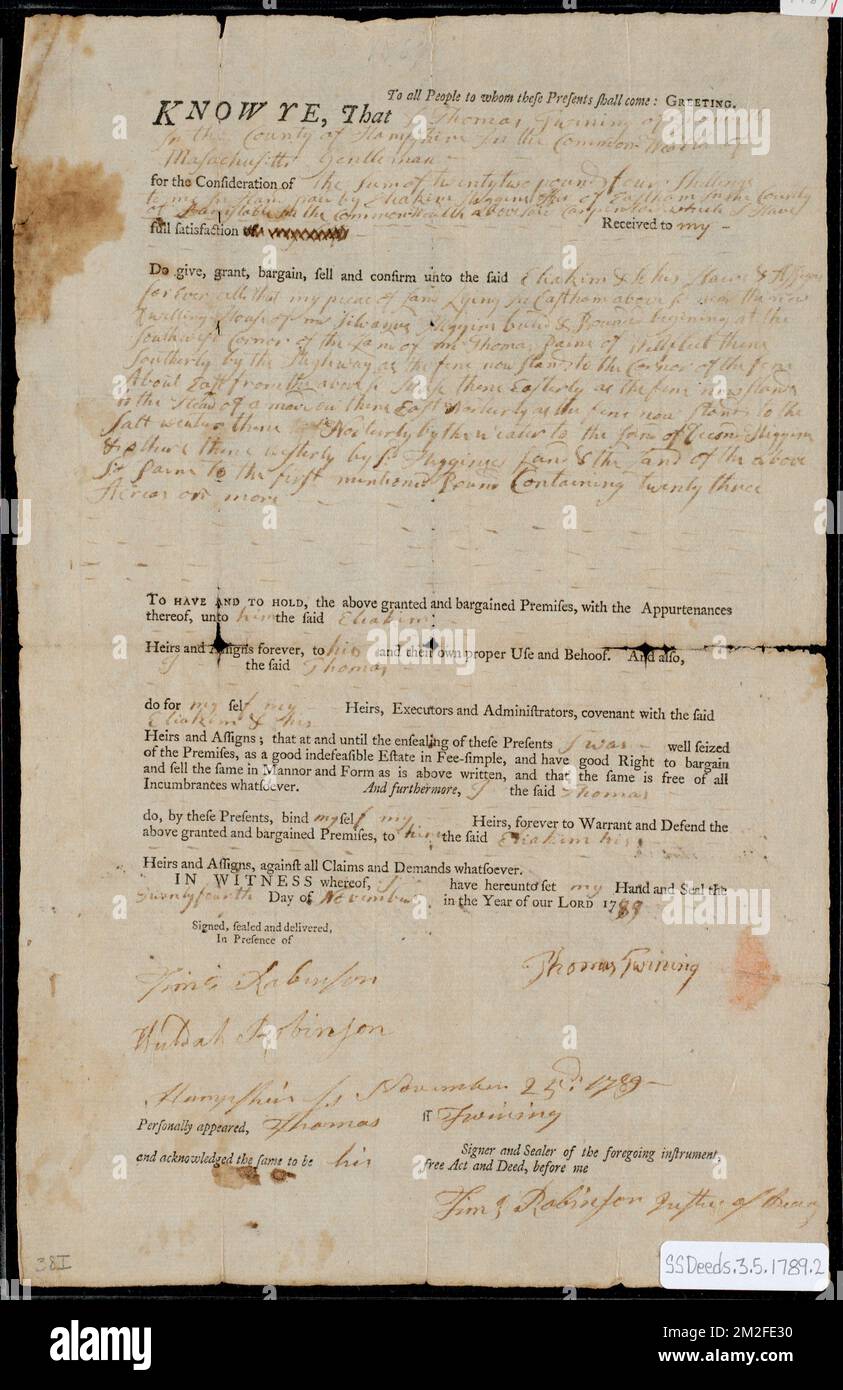 To all People to whom these Presents shall come: GREETING.
KNOW YE, That I Thomas Twining of
In the County of Hampshire In the Common Wealth of
Masachusitts Gentleman
for the Consideration of The Sum of twentytwo pound four Shillings
to me In Hand paid by Eliakim Higgins of Eastham In the County
of Barnstable In the Common Wealth above which I Have
full satisfaction Received to my
Do give, grant, bargain, sell and confirm unto the said Eliakim & to his Heirs & Assigns
for Ever all that my piece of land Lying In Eastham above sd near the now
Dwelling House of mr Silvanus Higgins buted & Bounded begining at the
Southwest Corner of the Land of mr Thomas Paine of Wellfleet thence
Southerly by the Highway as the fence now stands to the Corner of the fence
About East from the above sd House thence Easterly as the fence now stands
to the Head of a thence East Norterly as the fence now stands to the
Salt thence Norterly by the water to the land of Higgins
& thence westerly by sd Higgines Land & the Land of the above
sd Paine to the first mentioned Bound Containing twenty three
Acres or more
TO HAVE AND TO HOLD, the above granted and bargained Premises, with the Appurtenances
thereof, unto him the said Eliakim
Heirs and Assigns forever, to his and their own proper Use and Behoof. And also,
I the said Thomas
do for my self my Heirs, Executors and Administrators, covenant with the said
Eliakim & his
Heirs and Assigns; that at and until the ensealing of these Presents I was well seized
of the Premises, as a good indefeasible Estate in Fee-simple, and have good Right to bargain
and sell the same in Mannor and Form as is above written, and that the same is free of all
Incumbrances whatsoever. And furthermore, I the said Thomas
do, by these Presents, bind myself my Heirs, forever to Warrant and Defend the
above granted and bargained Premises, to him the said Eliakim his
Heirs and Assigns, against all Claims and Demands whatsoever.
IN WITNESS whereof, I have hereunto set my Hand and Seal the
Twentyfourth Day of November in the Year of our LORD 1789
Signed, sealed and delivered,
In Presence of
Thomas Twining
Timo Robinson
Huldah Robinson
Hampshire ss November 25d. 1789
Personally appeared, Thomas Twining
Signer and Sealer of the foregoing instrument,
and acknowledged the same to be his free Act and Deed, before me
Timo Robinson Justice of Peace
38I
SSDeeds.3.5.1789.2
alamy
Image ID: 2M2FE30
www.alamy.com